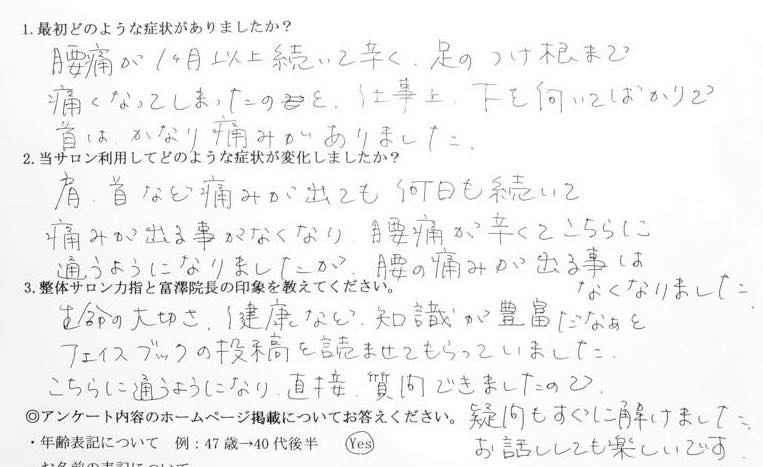 1.最初どのような症状がありましたか？
腰痛が1ヶ月以上続いて辛く、足のつけ根まで
痛くなってしまったのと、仕事上、下を向いてばかりで
首は、かなり痛みがありました。
2.当サロン利用してどのような症状が変化しましたか？
肩、首など痛みが出ても何日も続いて
痛みが出る事がなくなり、腰痛が辛くてこちらに
通うようになりましたが、腰の痛みが出る事は
なくなりました。
3.整体サロン力指と富澤院長の印象を教えてください。
生命の大切さ、健康など、知識が豊富だなぁと
フェイスブックの投稿を読ませてもらっていました。
こちらに通うようになり、直接、質問できましたので、
疑問もすぐに解けました。
お話ししても楽しいです。
◎アンケート内容のホームページ掲載についてお答えください。
・年齢表記について 例：47歳→40代後半 Yes